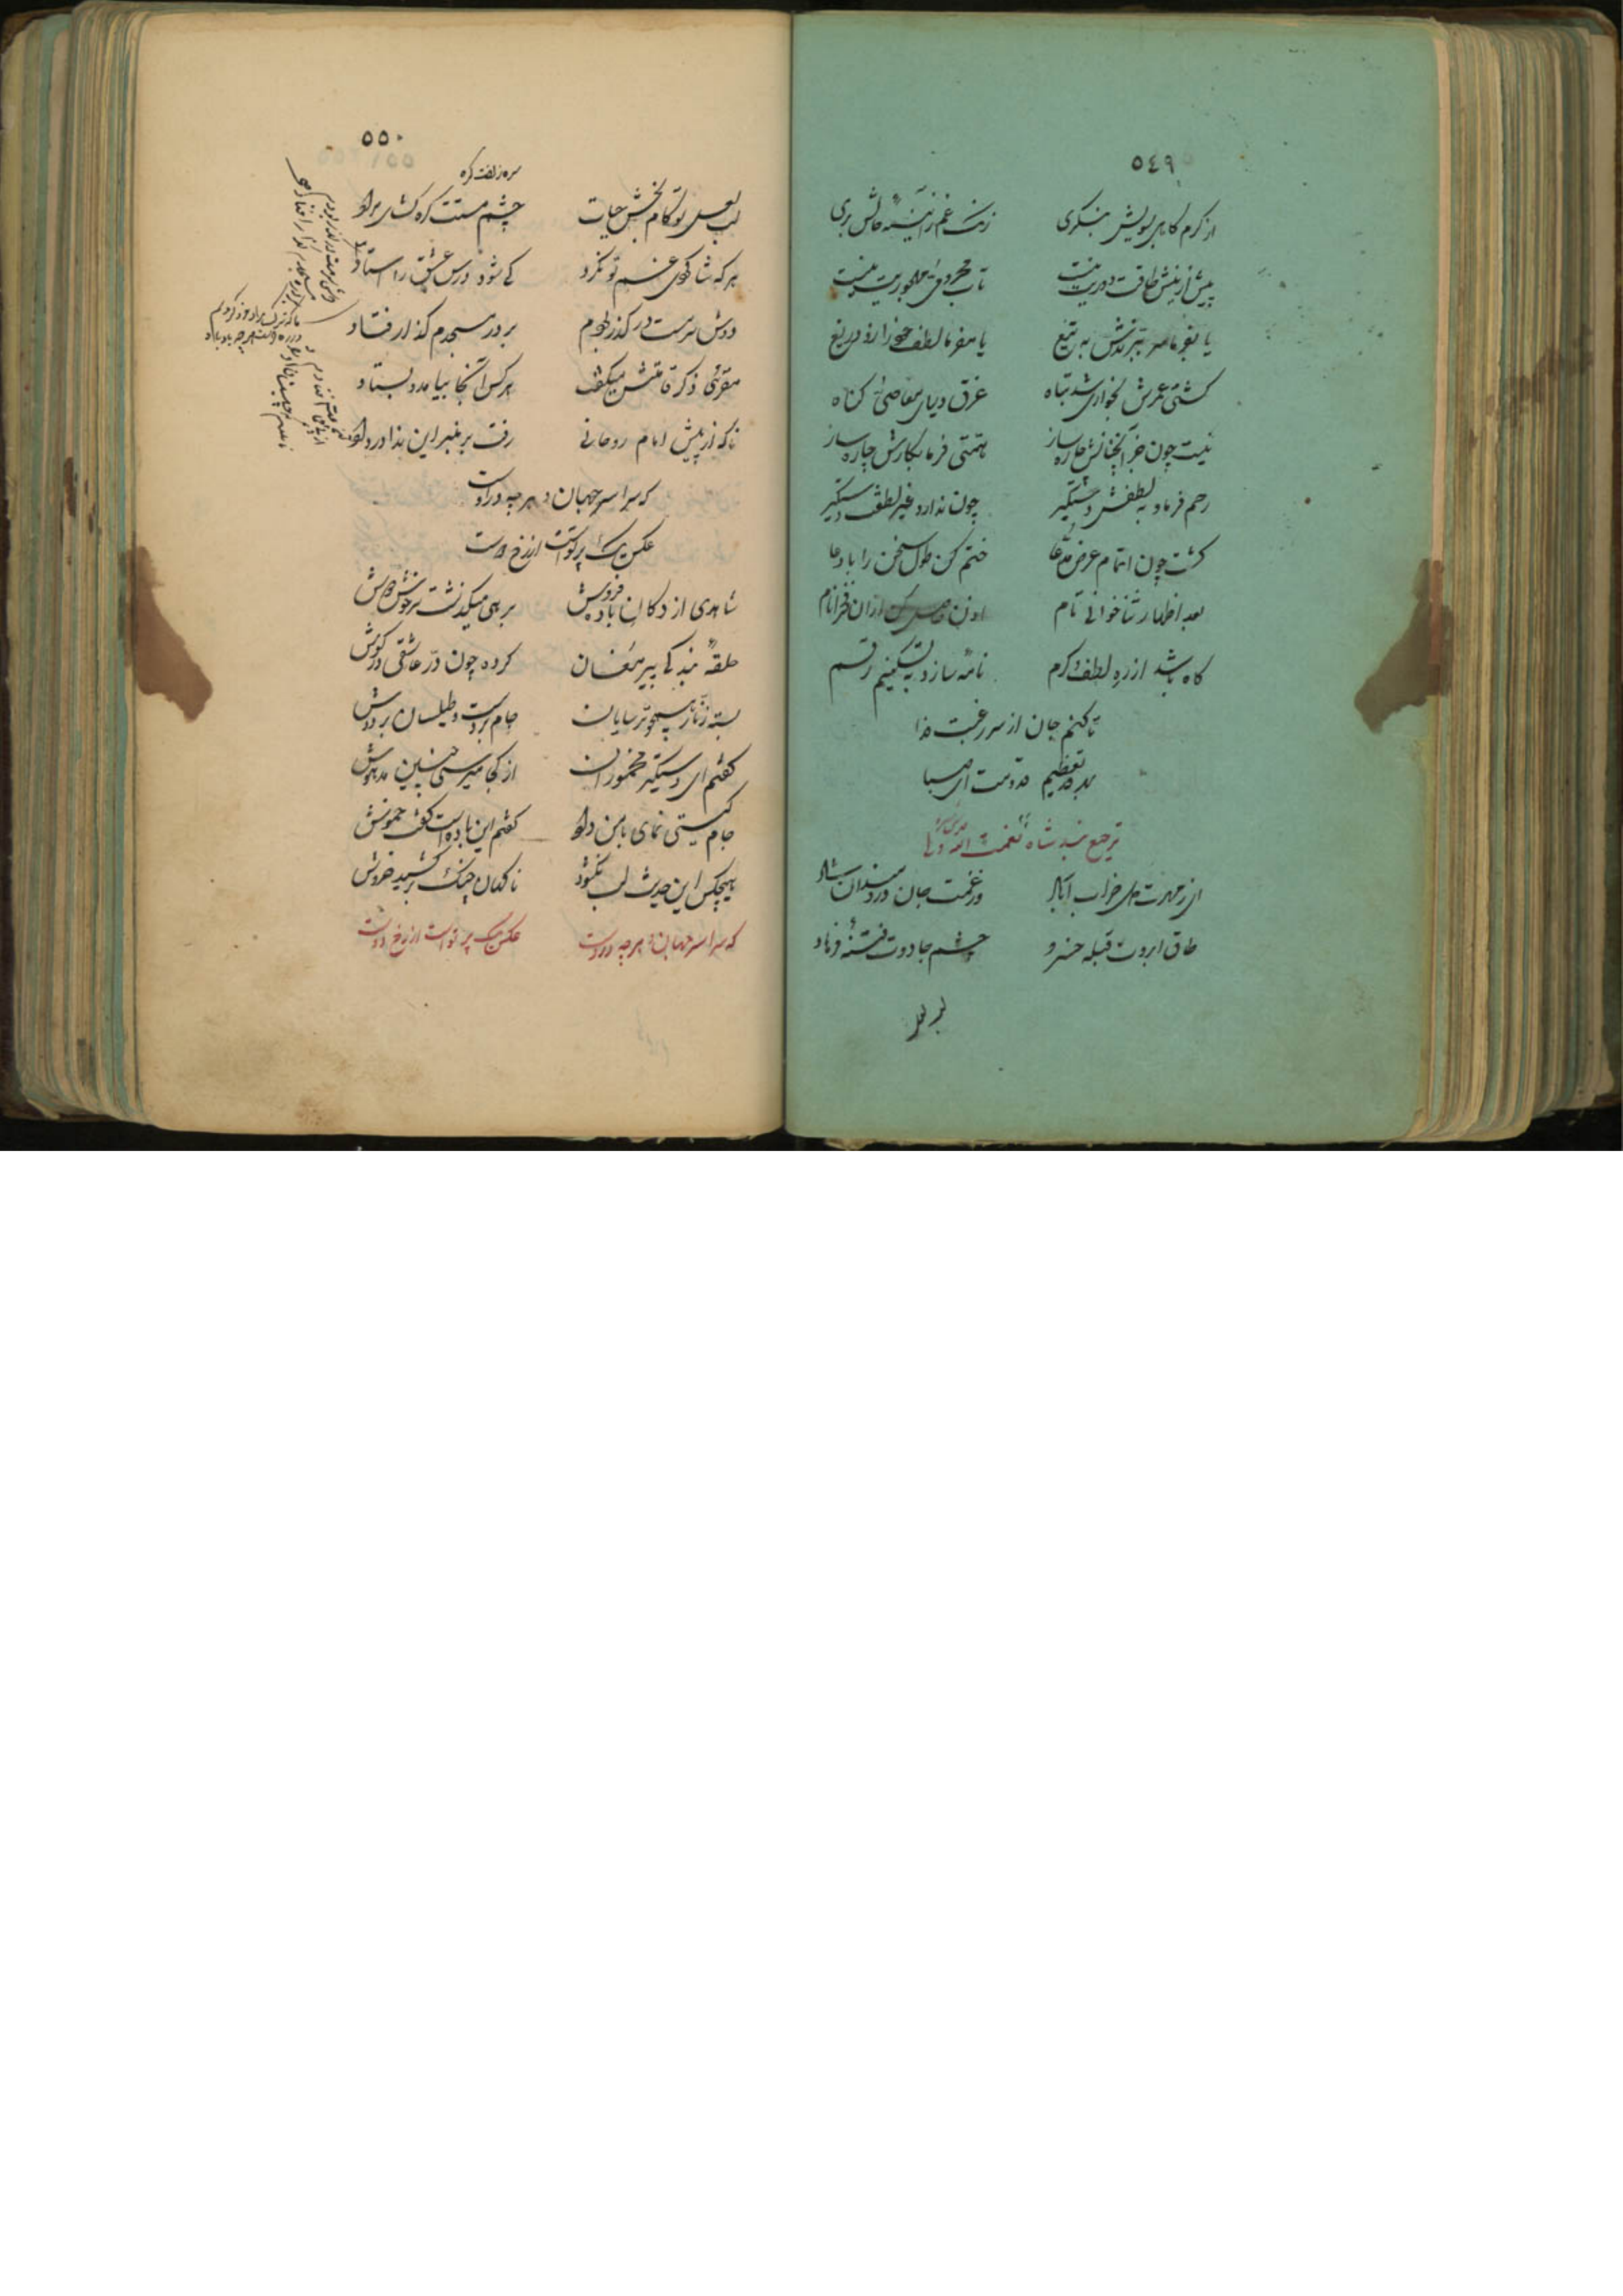 ٥٤٩
از کرم کاهی بسویش بنگری زنک غم ز آئینهٔ حالش بری
بیش ازینش طاقت دوریت نیست تاب محرومی و مهجوریت نیست
یا بفرما سر برندش به تیغ یا مفرما لطف خود را زو دریغ
کشتی عمرش بخواری شد تباه غرق دریای معاصی کناه
نیست چون جز آنجنابش چاره ساز همتی فرما بکارش چاره ساز
رحم فرما و به لطفش دستگیر چون ندارد غیر لطفت دستگیر
کشت چون اتمام عرض مدعا ختم کن طول سخن را با دعا
بعد اظهار ثنا خوانی تام اذن حاصل کن از آن فخر انام
کاه باشد از ره لطف و کرم نامهٔ سازد به تسکینم رقم
تا کنم جان از سر رغبت فدا
بهر تعظیم قدومت ای صبا
ترجیع بند شاه نعمت الله ولی
ای ز مهرت دل خراب آباد وز غمت جان دردمندان شاد
طاق ابروت قبله خسرو چشم جادوت فتنهٔ فرهاد
لب لعل
٥٥٠
سر زلفت کره
لب لعل تو کام بخش حیات چشم مستت کره کشای مراد
هر که شاکردی غم تو نکرد کی شود درس عشق را استاد
دوش سرمست در کذر بودم بر در مسجدم کذار افتاد
مقرئی ذکر قامتش میکفت هر کس آنجا بیامد و بستاد
ناکه از پیش امام روحانی رفت بر منبر این ندا در داد
که سراسر جهان و هر چه در اوست
عکس یک پرتویست از رخ دوست
شاهدی از دکان باده فروش بر رهی میکذشت سرخوش دوش
حلقهٔ بندکی پیر مغان کرده چون در عاشقی در کوش
بسته زنار همچو ترسایان جام بر دست و طیلسان بر دوش
کفتم ای دستگیر مخموران از کجا میرسی چنین مدهوش
جام کیتی نمای با من داد کفتم این باده است کفت خموش
هیچکس این حدیث لب نکشود ناکهان چنک برکشید خروش
که سراسر جهان و هر چه در اوست عکس یک پرتو است از رخ دوست